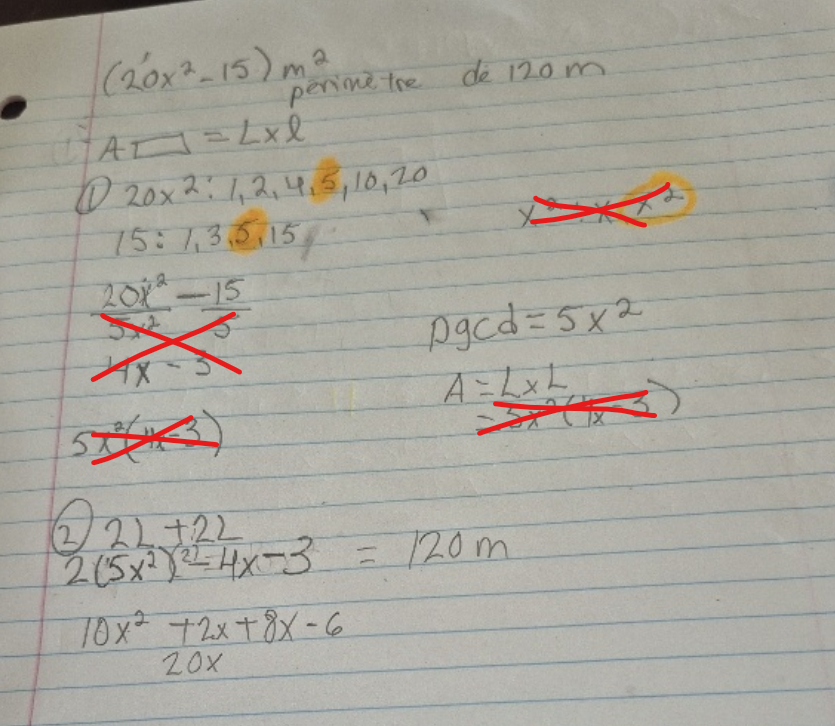 (20x² - 15) m²
périmètre de 120 m
A▭ = L x l
① 20x² : 1, 2, 4, 5, 10, 20
15 : 1, 3, 5, 15
20x² - 15
5x² 5
4x - 3
5x²(4x-3)
x² : x x²
pgcd = 5x²
A = L x L
= 5x²(4x-3)
② 2L + 2L
2(5x²) 4x - 3 = 120 m
10x² + 2x + 8x - 6
20x